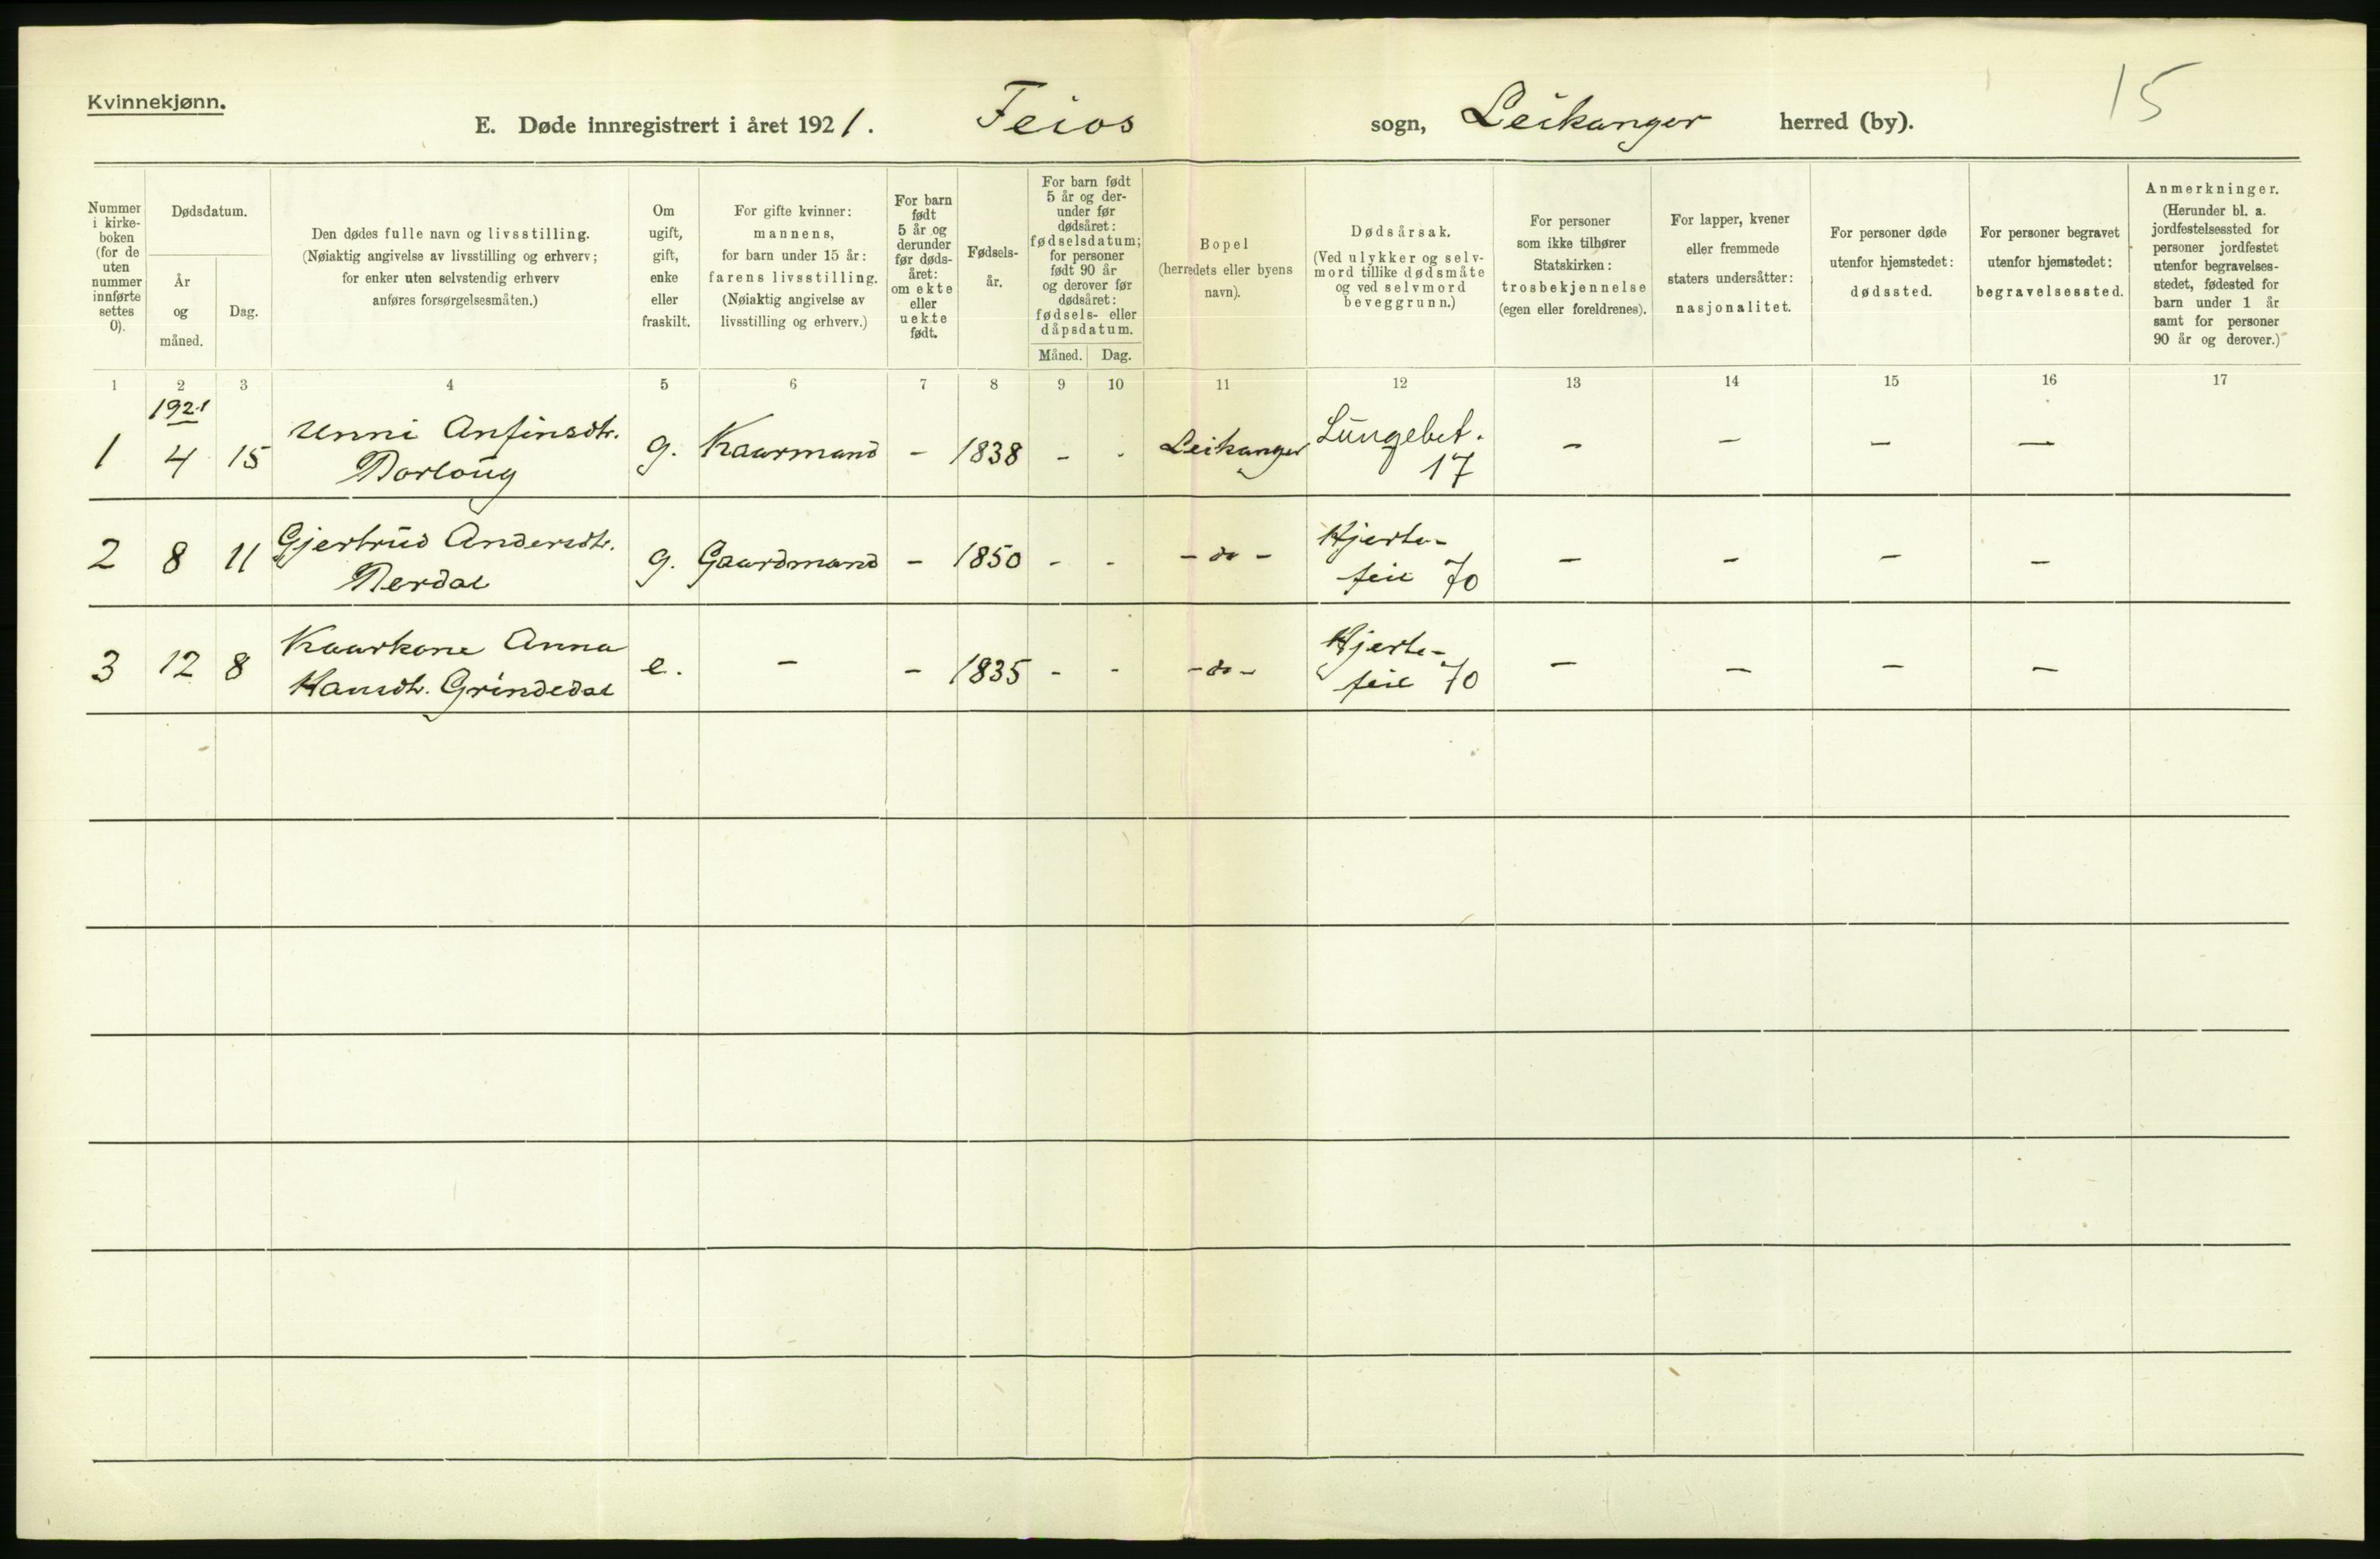 Kvinnekjønn.
15
E. Døde innregistrert i året 1921. Feios sogn, Leikanger herred (by).
Nummer i kirke-boken (for de uten nummer innførte settes 0).
Dødsdatum.
År og måned.
Dag.
Den dødes fulle navn og livsstilling.
(Nøiaktig angivelse av livsstilling og erhverv;
for enker uten selvstendig erhverv
anføres forsørgelsesmåten.)
Om ugift, gift, enke eller fraskilt.
For gifte kvinner:
mannens,
for barn under 15 år:
farens livsstilling.
(Nøiaktig angivelse av
livsstilling og erhverv.)
For barn født 5 år og derunder før døds-året: om ekte eller uekte født.
Fødsels-år.
For barn født 5 år og der-under før dødsåret: fødselsdatum; for personer født 90 år og derover før dødsåret: fødsels- eller dåpsdatum.
Måned. Dag.
Bopel
(herredets eller byens
navn).
Dødsårsak.
(Ved ulykker og selv-
mord tillike dødsmåte
og ved selvmord
beveggrunn.)
For personer
som ikke tilhører
Statskirken:
trosbekjennelse
(egen eller foreldrenes).
For lapper, kvener
eller fremmede
staters undersåtter:
nasjonalitet.
For personer døde
utenfor hjemstedet:
dødssted.
For personer begravet
utenfor hjemstedet:
begravelsessted.
Anmerkninger.
(Herunder bl. a.
jordfestelsessted for
personer jordfestet
utenfor begravelses-
stedet, fødested for
barn under 1 år
samt for personer
90 år og derover.)
1 2 3 4 5 6 7 8 9 10 11 12 13 14 15 16 17
1921
1 4 15 Unni Anfinsdtr. g. Kaarmand - 1838 - - Leikanger Lungebet. 17 - - - -
2 8 11 Gjertrud Andersdtr. g. Gaardmand - 1850 - - - do - Hjerte-
feil 70 - - - -
3 12 8 Kaarkone Anna
Hansdtr. Grindedal e. - - 1835 - - - do - Hjerte-
feil 70 - - - -